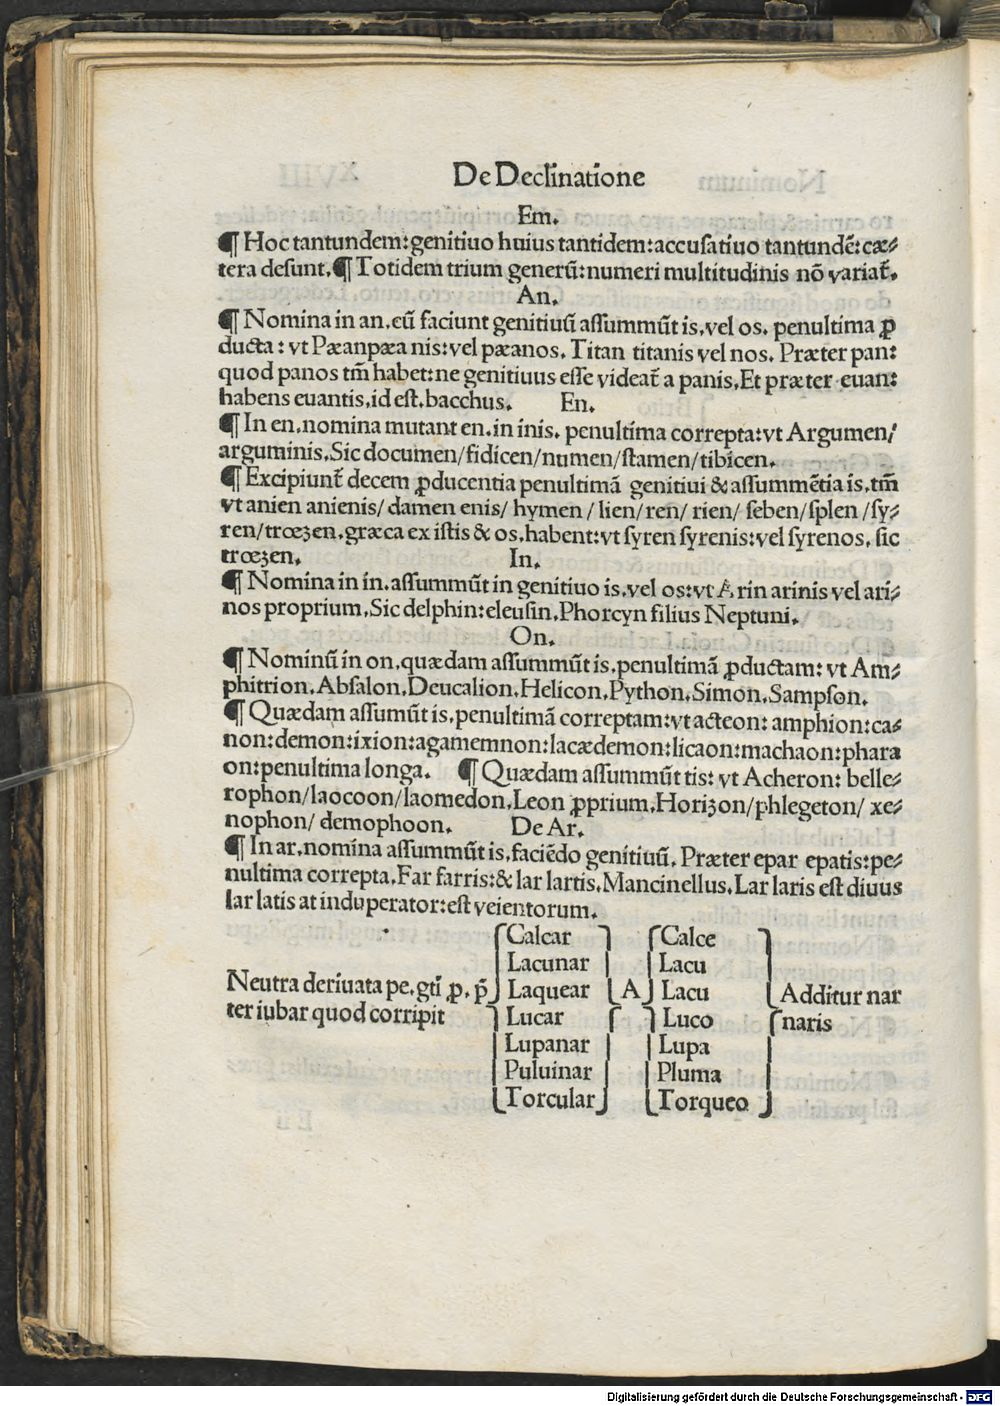 De Declinatione
Em.
¶ Hoc tantundem: genitiuo huius tantidem: accusatiuo tantundē: cæ⸗
tera desunt. ¶ Totidem trium generū: numeri multitudinis nō variat̄.
An.
¶ Nomina in an. cū faciunt genitiuū assummūt is. vel os. penultima ꝓ
ducta: vt Pæan pæanis: vel pæanos. Titan titanis vel nos. Præter pan:
quod panos tm̄ habet: ne genitiuus esse videat̄ a panis. Et præter euan:
habens euantis, id est, bacchus. En.
¶ In en. nomina mutant en. in inis. penultima correpta: vt Argumen/
arguminis. Sic documen/ fidicen/ numen/ stamen/ tibicen.
¶ Excipiunt̄ decem ꝓducentia penultimā genitiui & assummētia is. tm̄
vt anien anienis/ damen enis/ hymen/ lien/ ren/ rien/ seben/ splen/ sy⸗
ren/ trœzen. græca ex istis & os. habent: vt syren syrenis: vel syrenos. sic
trœzen. In.
¶ Nomina in in. assummūt in genitiuo is. vel os: vt Arin arinis vel ari⸗
nos proprium. Sic delphin: eleusin. Phorcyn filius Neptuni.
On.
¶ Nominū in on. quædam assummūt is. penultimā ꝓductam: vt Am⸗
phitrion. Absalon. Deucalion. Helicon. Python. Simon. Sampson.
¶ Quædam assumūt is. penultimā correptam: vt acteon: amphion: ca⸗
non: demon: ixion: agamemnon: lacædemon: licaon: machaon: phara
on: penultima longa. ¶ Quædam assummūt tis: vt Acheron: belle⸗
rophon/ laocoon/ laomedon. Leon ꝓprium. Horizon/ phlegeton/ xe⸗
nophon/ demophoon. De Ar.
¶ In ar. nomina assummūt is. faciēdo genitiuū. Præter epar epatis: pe⸗
nultima correpta. Far farris: & lar lartis. Mancinellus. Lar laris est diuus
lar latis at induperator: est veientorum.
Calcar Calce
Lacunar Lacu
Neutra deriuata pe. gtī ꝓ. p̄ Laquear A Lacu Additur nar
ter iubar quod corripit Lucar Luco naris
Lupanar Lupa
Puluinar Pluma
Torcular Torqueo
Digitalisierung gefördert durch die Deutsche Forschungsgemeinschaft - DFG